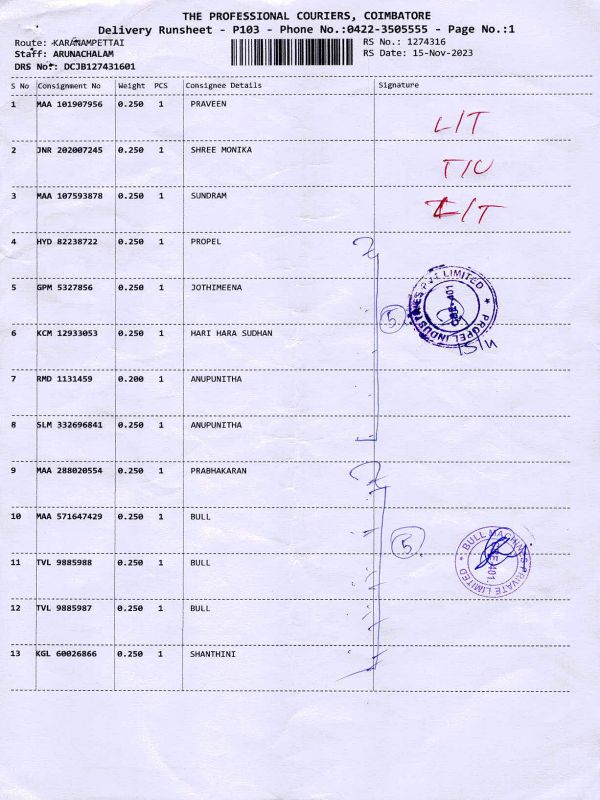 THE PROFESSIONAL COURIERS, COIMBATORE
Delivery Runsheet - P103 - Phone No.:0422-3505555 - Page No.:1
Route: KARANAMPETTAI RS No.: 1274316
Staff: ARUNACHALAM RS Date: 15-Nov-2023
DRS No.: DCJB127431601
S No Consignment No Weight PCS Consignee Details Signature
1 MAA 101907956 0.250 1 PRAVEEN
L/T
2 JNR 202007245 0.250 1 SHREE MONIKA
3 MAA 107593878 0.250 1 SUNDRAM
L/T
4 HYD 82238722 0.250 1 PROPEL
5 GPM 5327856 0.250 1 JOTHIMEENA
5 PROPEL INDUSTRIES PVT LIMITED
15/11
6 KCM 12933053 0.250 1 HARI HARA SUDHAN
7 RMD 1131459 0.200 1 ANUPUNITHA
8 SLM 332696841 0.250 1 ANUPUNITHA
9 MAA 288020554 0.250 1 PRABHAKARAN
10 MAA 571647429 0.250 1 BULL
5 BULL MACHINES PRIVATE LIMITED
11 TVL 9885988 0.250 1 BULL
12 TVL 9885987 0.250 1 BULL
13 KGL 60026866 0.250 1 SHANTHINI